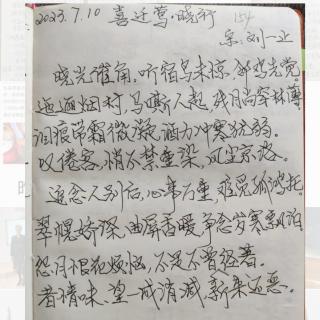 2023.7.10 喜迁莺·晓行 154
宋:刘一止
晓光催角,听宿鸟未惊,邻鸡先觉。
迤逦烟村,马嘶人起,残月尚穿林薄。
泪痕带霜微凝,酒力冲寒犹弱。
叹倦客,悄不禁重染,风尘京洛。
追念人别后,心事万重,难觅孤鸿托。
翠幌娇深,曲屏香暖,争念岁寒飘泊
怨月恨花烦恼,不是不曾经著。
者情味、望一成消减,新来还恶。